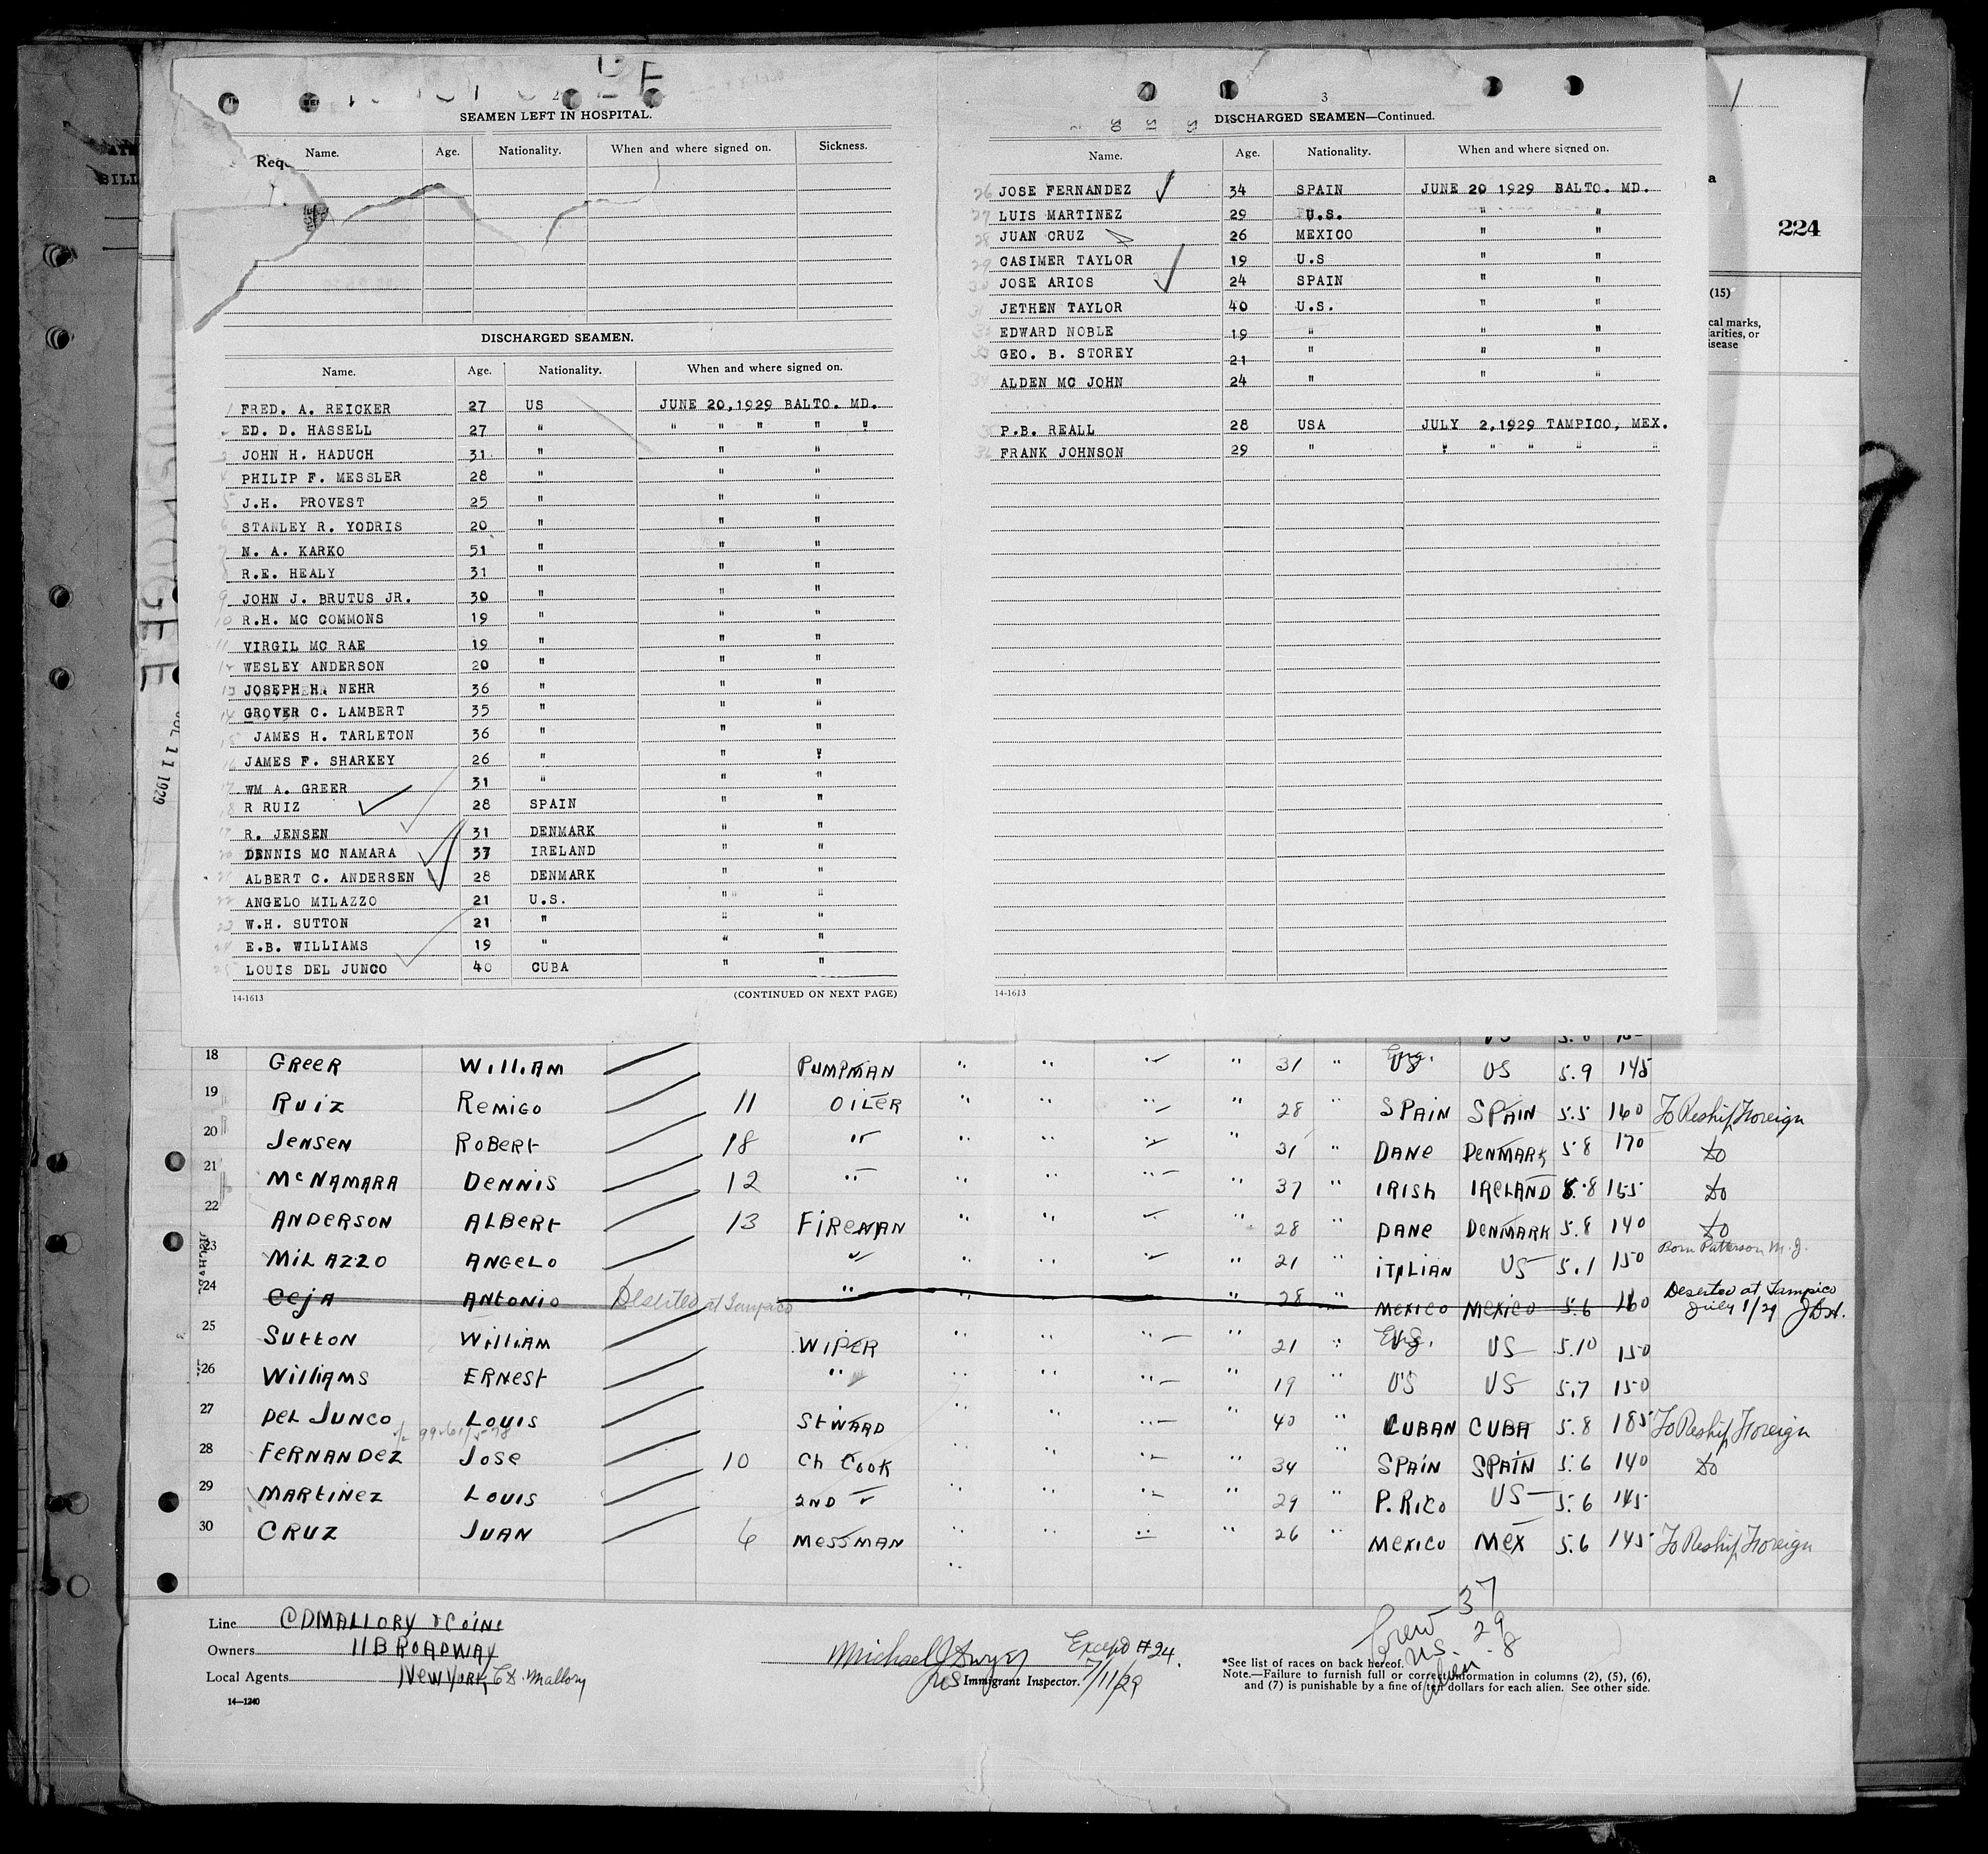 2
SEAMEN LEFT IN HOSPITAL.
Name. Age. Nationality. When and where signed on. Sickness.
DISCHARGED SEAMEN.
Name. Age. Nationality. When and where signed on.
1 FRED. A. REICKER 27 US JUNE 20,1929 BALTO. MD.
ED. D. HASSELL 27 " " " " " "
JOHN H. HADUCH 31 " " "
PHILIP F. MESSLER 28 " " "
5 J.H. PROVEST 25 " " "
6 STANLEY R. YODRIS 20 " " "
7 N. A. KARKO 51 " " "
R.E. HEALY 31 " " "
9 JOHN J. BRUTUS JR. 30 " " "
10 R.H. MC COMMONS 19 " " "
11 VIRGIL MC RAE 19 " " "
12 WESLEY ANDERSON 20 " " "
13 JOSEPH H NEHR 36 " " "
14 GROVER C. LAMBERT 35 " " "
15 JAMES H. TARLETON 36 " " "
16 JAMES F. SHARKEY 26 " " "
17 WM A. GREER 31 " " "
18 R RUIZ 28 SPAIN " "
19 R. JENSEN 31 DENMARK " "
20 DENNIS MC NAMARA 37 IRELAND " "
21 ALBERT C. ANDERSEN 28 DENMARK " "
22 ANGELO MILAZZO 21 U.S. " "
23 W.H. SUTTON 21 " " "
24 E.B. WILLIAMS 19 " " "
25 LOUIS DEL JUNCO 40 CUBA " "
14-1613 (CONTINUED ON NEXT PAGE)
3
DISCHARGED SEAMEN—Continued.
Name. Age. Nationality. When and where signed on.
26 JOSE FERNANDEZ 34 SPAIN JUNE 20 1929 BALTO. MD.
27 LUIS MARTINEZ 29 U.S. " "
28 JUAN CRUZ 26 MEXICO " "
29 CASIMER TAYLOR 19 U.S " "
30 JOSE ARIOS 24 SPAIN " "
JETHEN TAYLOR 40 U.S. " "
EDWARD NOBLE 19 " " "
GEO. B. STOREY 21 " " "
ALDEN MC JOHN 24 " " "
P.B. REALL 28 USA JULY 2,1929 TAMPICO, MEX.
FRANK JOHNSON 29 " " " " " "
14-1613
224
(15)
cal marks,
arities, or
isease
JUL 11 1929
18 GREER WILLIAM PUMPMAN " " " " 31 " Eng. US 5.9 145
19 RUIZ REMIGO 11 OILER " " " " 28 " SPAIN SPAIN 5.5 160 To Reship Foreign
20 JENSEN ROBERT 18 " " " " " 31 " DANE DENMARK 5.8 170 do
21 McNAMARA DENNIS 12 " " " " " 37 " IRISH IRELAND 5.8 155 do
22 ANDERSON ALBERT 13 FIREMAN " " " " 28 " DANE DENMARK 5.8 140 do
23 MILAZZO ANGELO " " " " " 21 " ITALIAN US 5.1 150 Born Patterson N.J.
24 CEJA ANTONIO Deserted at Tampico " " " 28 " MEXICO MEXICO 5.6 160 Deserted at Tampico July 1/29
25 SUTTON WILLIAM WIPER " " " " 21 " Eng. US 5.10 150
26 WILLIAMS ERNEST " " " " " 19 " US US 5.7 150
27 DEL JUNCO LOUIS STWARD " " " " 40 " CUBAN CUBA 5.8 185 To Reship Foreign
28 FERNANDEZ JOSE 10 CH COOK " " " " 34 " SPAIN SPAIN 5.6 140 do
29 MARTINEZ LOUIS 2ND " " " " " 29 " P. RICO US 5.6 145
30 CRUZ JUAN 6 MESSMAN " " " " 26 " MEXICO MEX 5.6 145 To Reship Foreign
Line C D MALLORY & CO INC
Owners 11 BROADWAY
Local Agents NEW YORK C.D. Mallory
14—1240
Except #24.
7/11/29
Immigrant Inspector.
Crew 37
US. 29
Alien 8
*See list of races on back hereof.
Note.—Failure to furnish full or correct information in columns (2), (5), (6),
and (7) is punishable by a fine of ten dollars for each alien. See other side.